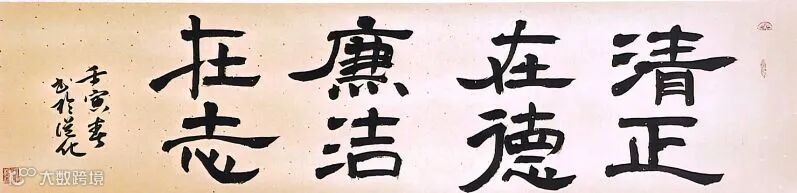 清正
在德
廉洁
在志
壬寅春
书于从化
大数跨境